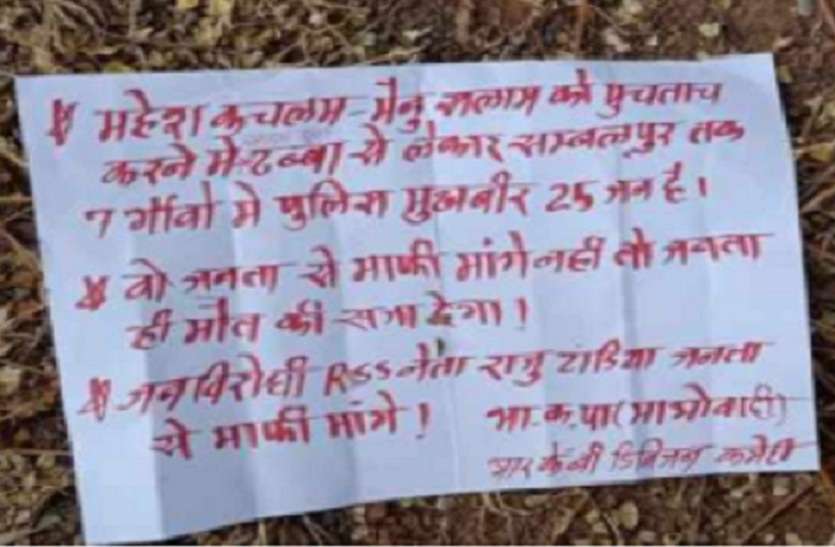 महेश कचलम-मैनु सलाम को पुचताच
करने मे ढब्बा से लेकार सम्बलपुर तक
7 गाँवो मे पुलिस मुखबीर 25 जन है।
वो जनता से माफी मांगे नही तो जनता
ही मौत की सजा देगा!
जनविरोधी RSS नेता राजु टांडिया जनता
से माफी मांगे! भा.क.पा(माओवादी)
आर के बी डिविजन कमेटी